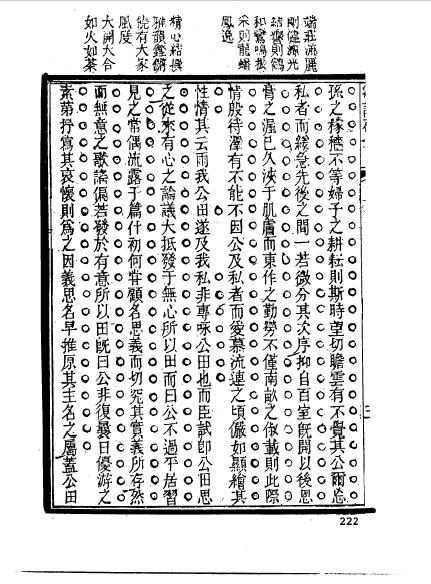 端莊流麗
剛健
結響則鶴
和鸞鳴振
采則龍蟠
鳳逸
精心結撰
雅韻鏗鏘
能有大家
風度
大開大合
如火如荼
孫之稼穡不等婦子之耕耘則斯時望切瞻雲有不覺其公爾忘
私者而緩急先後之間一若微分其次序抑自百室旣開以後恩
膏之渥已久浹于肌膚而東作之勤勞不僅南畝之俶載則此際
情殷待澤有不能不因公及私者而愛慕流連之頃儼如顯繪其
性情其云雨我公田遂及我私非專咏公田也而臣試即公田思
之從來有心之論議大抵發于無心所以田而曰公不過平居習
見之常偶流露于篇什初何甞顧名思義而切究其實義所存然
而無意之歌謠偏若發於有意所以田旣曰公非復曩日優游之
素第抒寫其哀懷則爲之因義思名早推原其主名之屬蓋公田
222